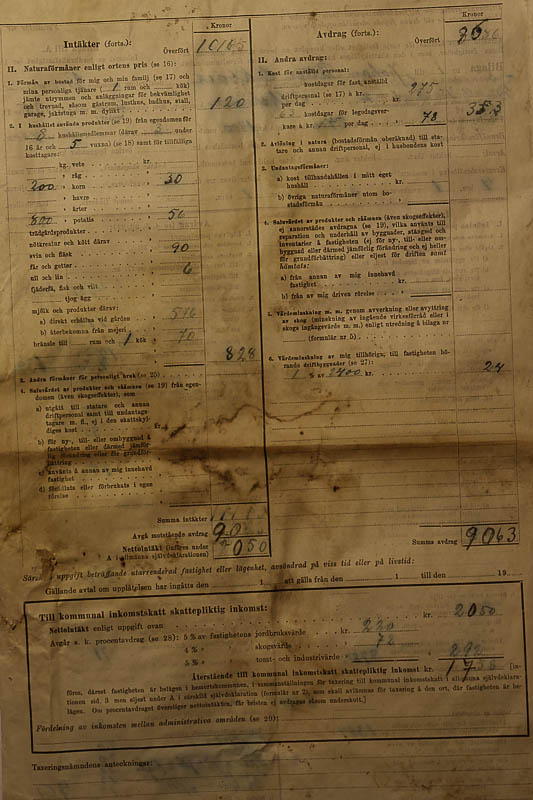 Intäkter (forts.):
Kronor
Överfört
10165
II. Naturaförmåner enligt ortens pris (se 16):
1. Förmån av bostad för mig och min familj (se 17) och
mina personliga tjänare ( 1 rum och kök)
jämte utrymmen och anläggningar för bekvämlighet
och trevnad, såsom gästrum, lusthus, badhus, stall,
garage, jakträtt m. m. dyl.
120
2. I hushållet använda produkter (se 19) från egendomen för
8 hushållsmedlemmar (därav 3 under
16 år och 5 vuxna) (se 18) samt för tillfälliga
kosttagare:
kg. vete kr.
» råg »
200 » korn » 30
» havre »
» ärter »
800 » potatis » 56
trädgårdsprodukter »
nötkreatur och kött därav »
svin och fläsk » 90
får och getter » 6
ull och lin »
fjäderfä, fisk och vilt »
tjog ägg »
mjölk och produkter därav:
a) direkt erhållna vid gården »
b) återbekomna från mejeri »
bränsle till rum och 1 kök » 70
828
3. Andra förmåner för personligt bruk (se 25)
4. Saluvärdet av produkter och råämnen (se 19) från egen-
domen (även skogseffekter), som
a) utgått till statare och annan
driftpersonal samt till undantags-
tagare m. fl., ej i den skattskyl-
diges kost kr.
b) för ny-, till- eller ombyggnad å
fastigheten eller därmed jämför-
lig förändring eller för grundför-
bättring »
c) använts å annan av mig innehavd
fastighet »
d) försålts eller förbrukats i egen
rörelse »
Summa intäkter
Avgå motstående avdrag
Nettointäkt (införes under
A i allmänna självdeklarationen)
2050
Avdrag (forts.):
Kronor
Överfört
II. Andra avdrag:
1. Kost för anställd personal:
kostdagar för fast anställd
driftpersonal (se 17) à kr.
per dag kr. 275
kostdagar för legodagsver-
kare à kr. per dag » 78
353
2. Avlöning i natura (bostadsförmån oberäknad) till sta-
tare och annan driftpersonal, ej i husbondens kost
3. Undantagsförmåner:
a) kost tillhandahållen i mitt eget
hushåll kr.
b) övriga naturaförmåner utom bo-
stadsförmån »
4. Saluvärdet av produkter och råämnen (även skogseffekter),
ej annorstädes avdragna (se 19), vilka använts till
reparation och underhåll av byggnader, stängsel och
inventarier å fastigheten (ej för ny-, till- eller om-
byggnad eller därmed jämförlig förändring och ej heller
för grundförbättring) eller eljest för driften samt
hämtats:
a) från annan av mig innehavd
fastighet kr.
b) från av mig driven rörelse »
5. Värdeminskning m. m. genom avverkning eller avyttring
av skog (minskning av ingående virkesförråd eller i
skogs ingångsvärde m. m.) enligt utredning å bilaga nr
(formulär nr 5)
6. Värdeminskning av mig tillhöriga, till fastigheten hö-
rande driftbyggnader (se 27):
1 % av 2400 kr. 24
Summa avdrag
9063
Särskild uppgift beträffande utarrenderad fastighet eller lägenhet, avsöndrad på viss tid eller på livstid:
Gällande avtal om upplåtelsen har ingåtts den 1 att gälla från den 1 till den 19
Till kommunal inkomstskatt skattepliktig inkomst:
Nettointäkt enligt uppgift ovan kr. 2050
Avgår s. k. procentavdrag (se 28): 5 % av fastighetens jordbruksvärde kr. 220
4 % » skogsvärde » 72
5 % » tomt- och industrivärde » 292
Återstående till kommunal inkomstskatt skattepliktig inkomst kr. 1758 [in-
föres, därest fastigheten är belägen i hemortskommunen, i sammanställningen för taxering till kommunal inkomstskatt i allmänna självdeklara-
tionen sid. 3 men eljest under A i särskild självdeklaration (formulär nr 2), som skall avlämnas för taxering å den ort, där fastigheten är be-
lägen. Om procentavdraget överstiger nettointäkten, får bristen ej avdragas såsom underskott.]
Fördelning av inkomsten mellan administrativa områden (se 29):
Taxeringsnämndens anteckningar: